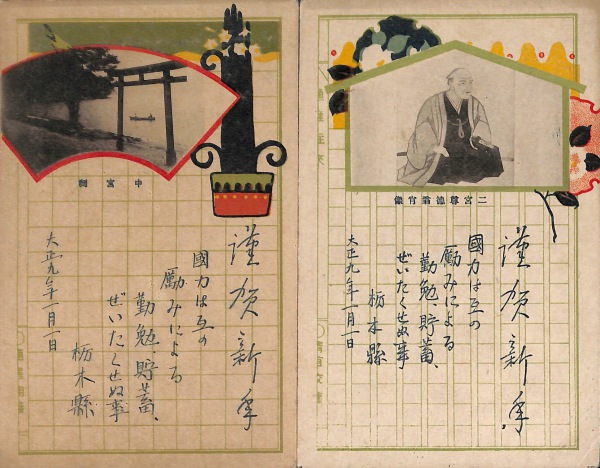 中宮祠
謹賀新年
國力は互の
励みによる
勤勉、貯蓄、
ぜいたくせぬ事
栃木縣
大正九年一月一日
二宮尊徳翁肖像
謹賀新年
國力は互の
励みによる
勤勉、貯蓄、
ぜいたくせぬ事
栃木縣
大正九年一月一日